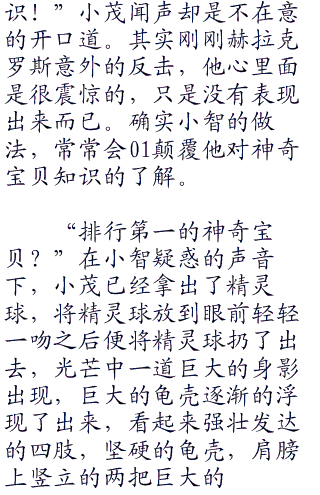 识！”小茂闻声却是不在意
的开口道。其实刚刚赫拉克
罗斯意外的反击，他心里面
是很震惊的，只是没有表现
出来而已。确实小智的做
法，常常会01颠覆他对神奇
宝贝知识的了解。
“排行第一的神奇宝
贝？”在小智疑惑的声音
下，小茂已经拿出了精灵
球，将精灵球放到眼前轻轻
一吻之后便将精灵球扔了出
去，光芒中一道巨大的身影
出现，巨大的龟壳逐渐的浮
现了出来，看起来强壮发达
的四肢，坚硬的龟壳，肩膀
上竖立的两把巨大的